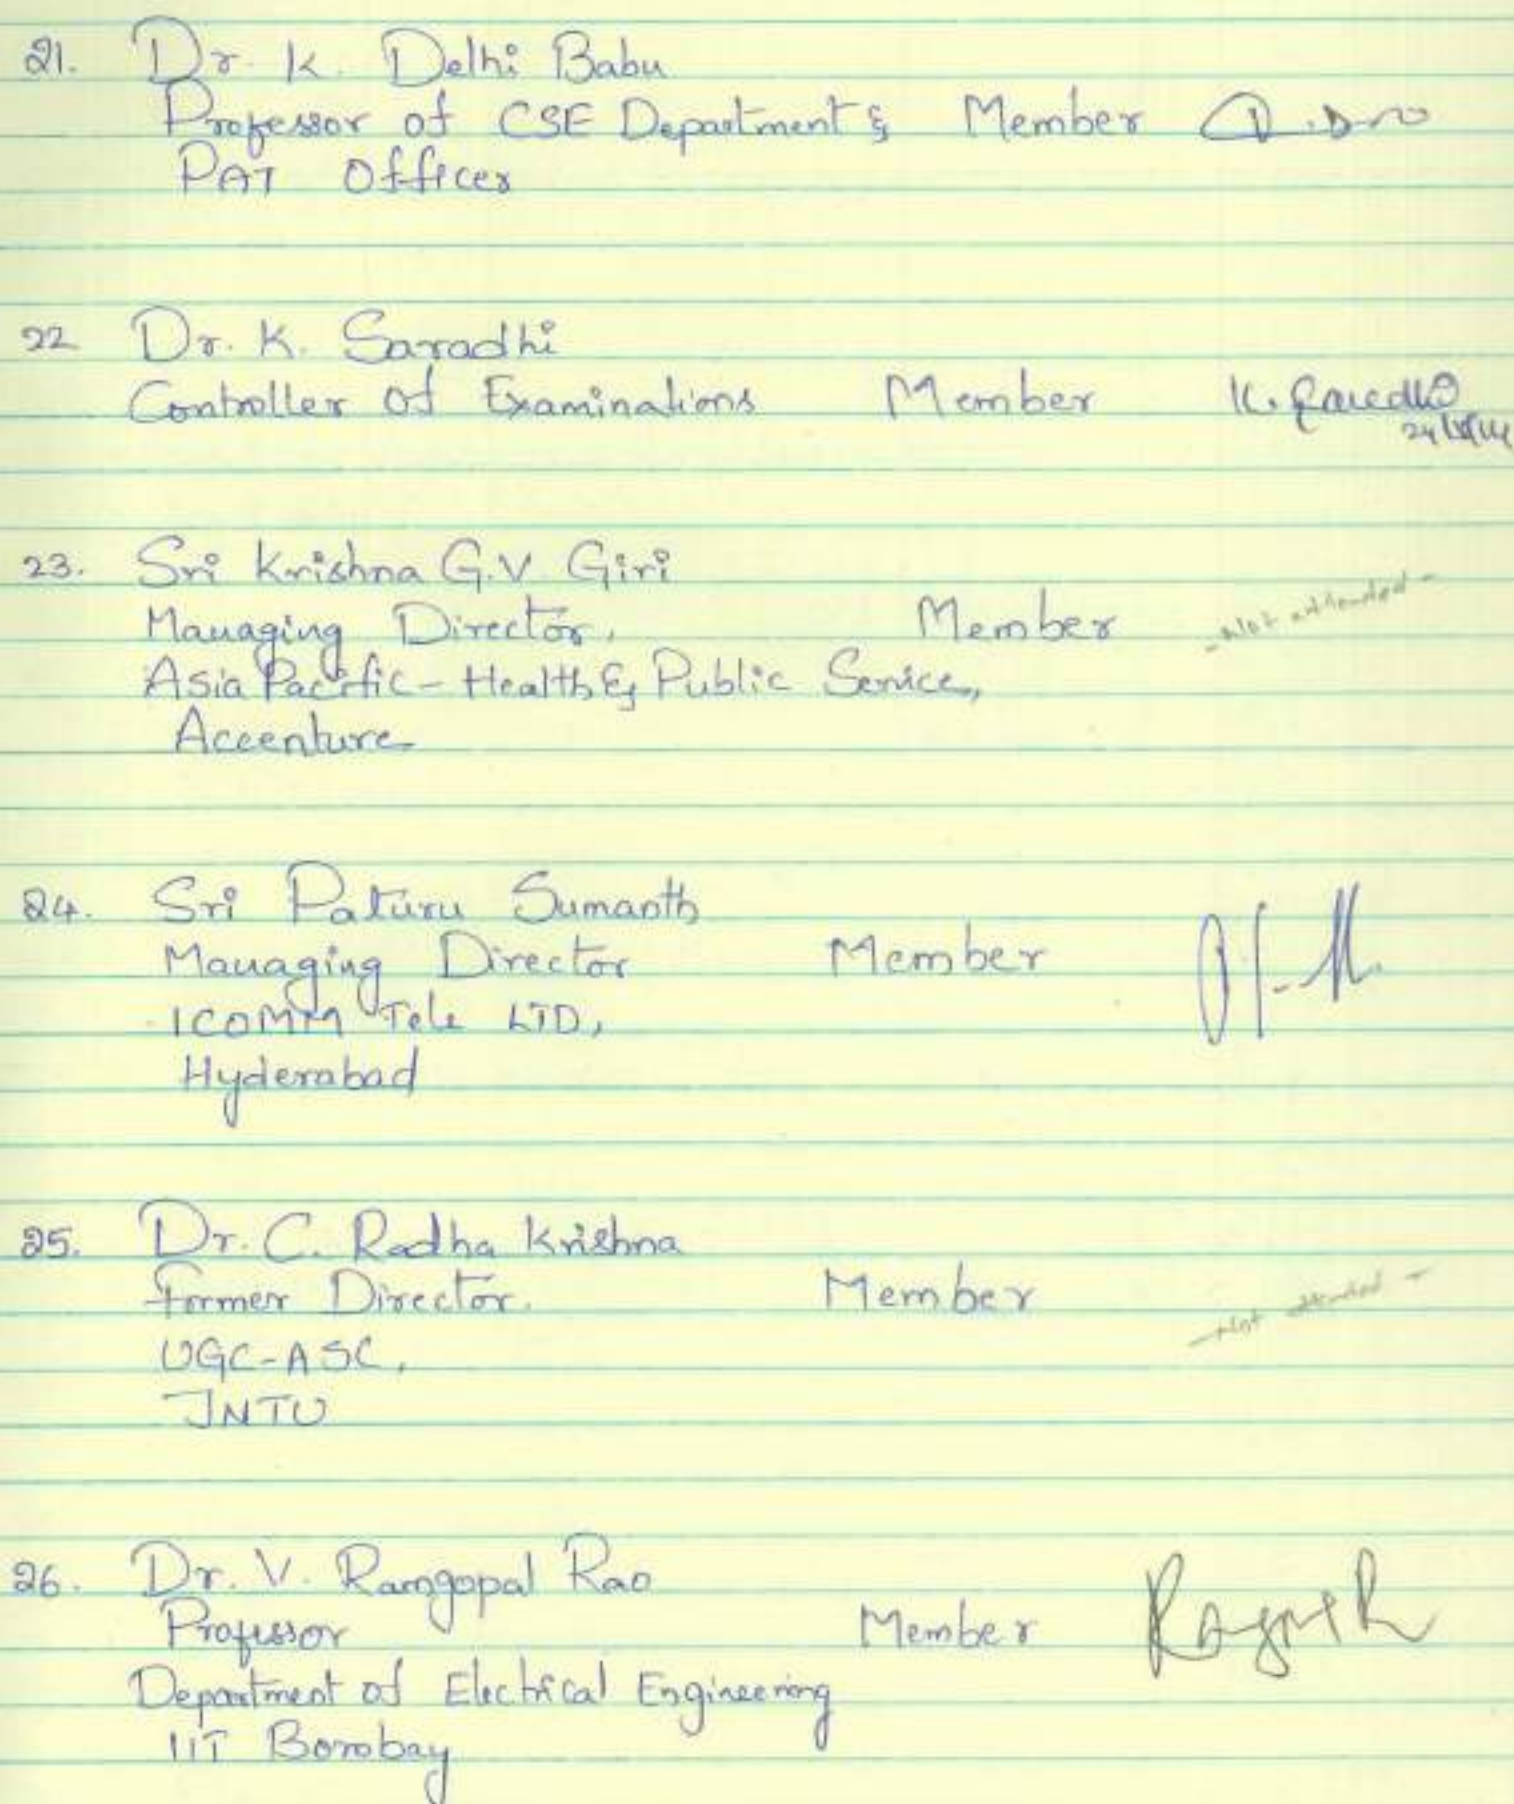 21. Dr. K. Delhi Babu
Professor of CSE Department & Member
PAT Officer
22 Dr. K. Saradhi
Controller of Examinations Member K. Saradhi
23. Sri Krishna G.V. Giri
Managing Director, Member - Not attended -
Asia Pacific - Health & Public Service,
Accenture
24. Sri Paturu Sumanth
Managing Director Member
ICOMM Tele LTD,
Hyderabad
25. Dr. C. Radha Krishna
Former Director. Member - Not attended -
UGC-ASC,
JNTU
26. Dr. V. Ramgopal Rao
Professor Member
Department of Electrical Engineering
IIT Bombay